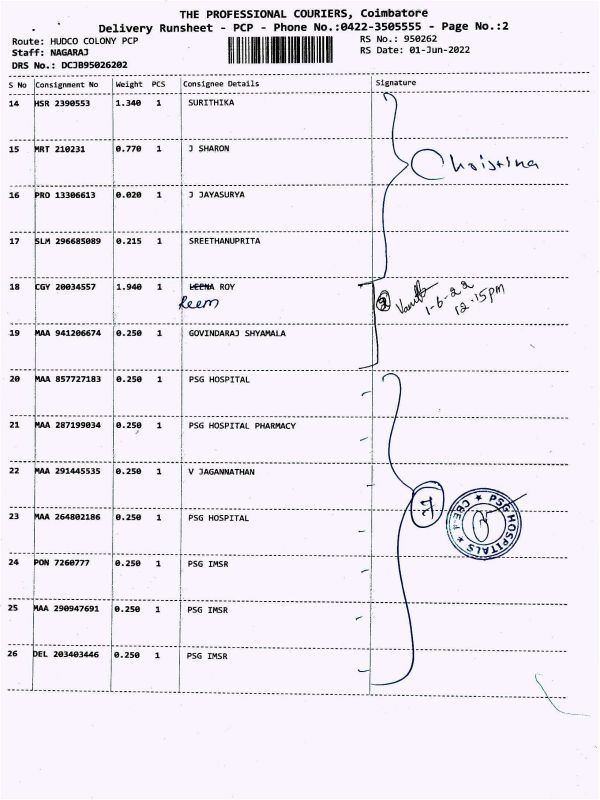 THE PROFESSIONAL COURIERS, Coimbatore
Delivery Runsheet - PCP - Phone No.:0422-3505555 - Page No.:2
Route: HUDCO COLONY PCP
RS No.: 950262
Staff: NAGARAJ
RS Date: 01-Jun-2022
DRS No.: DCJB95026202
S No Consignment No Weight PCS Consignee Details Signature
14 HSR 2390553 1.340 1 SURITHIKA
15 MRT 210231 0.770 1 J SHARON
Christina
16 PRO 13306613 0.020 1 J JAYASURYA
17 SLM 296685089 0.215 1 SREETHANUPRITA
18 CGY 20034557 1.940 1 LEENA ROY
Reem
2
1-6-22
12.15pm
19 MAA 941206674 0.250 1 GOVINDARAJ SHYAMALA
20 MAA 857727183 0.250 1 PSG HOSPITAL
21 MAA 287199034 0.250 1 PSG HOSPITAL PHARMACY
22 MAA 291445535 0.250 1 V JAGANNATHAN
7
PSG HOSPITALS CBE-4
23 MAA 264802186 0.250 1 PSG HOSPITAL
24 PON 7260777 0.250 1 PSG IMSR
25 MAA 290947691 0.250 1 PSG IMSR
26 DEL 203403446 0.250 1 PSG IMSR